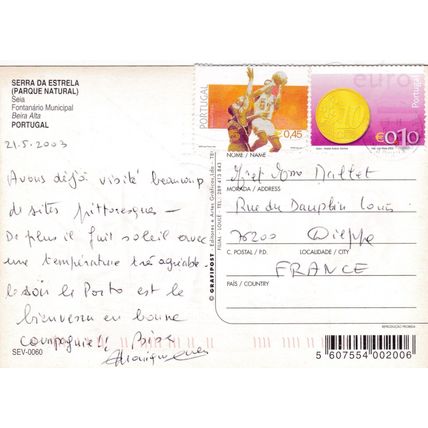 SERRA DA ESTRELA
(PARQUE NATURAL)
Seia
Fontanário Municipal
Beira Alta
PORTUGAL
21.5.2003
Avons déjà visité beaucoup
de sites pittoresques –
De plus il fait soleil avec
une température très agréable.
le soir le Porto est le
bienvenu en bonne
compagnie!! Bises
SEV-0060
PORTUGAL
€0,45
euro
Portugal
€0,10
© GRAFIPOST
NOME / NAME
Mallet
MORADA / ADDRESS
Rue du Dauphin Louis
76200 Dieppe
C. POSTAL / P.D. LOCALIDADE / CITY
FRANCE
PAÍS / COUNTRY
REPRODUÇÃO PROIBIDA
5 607554 002006